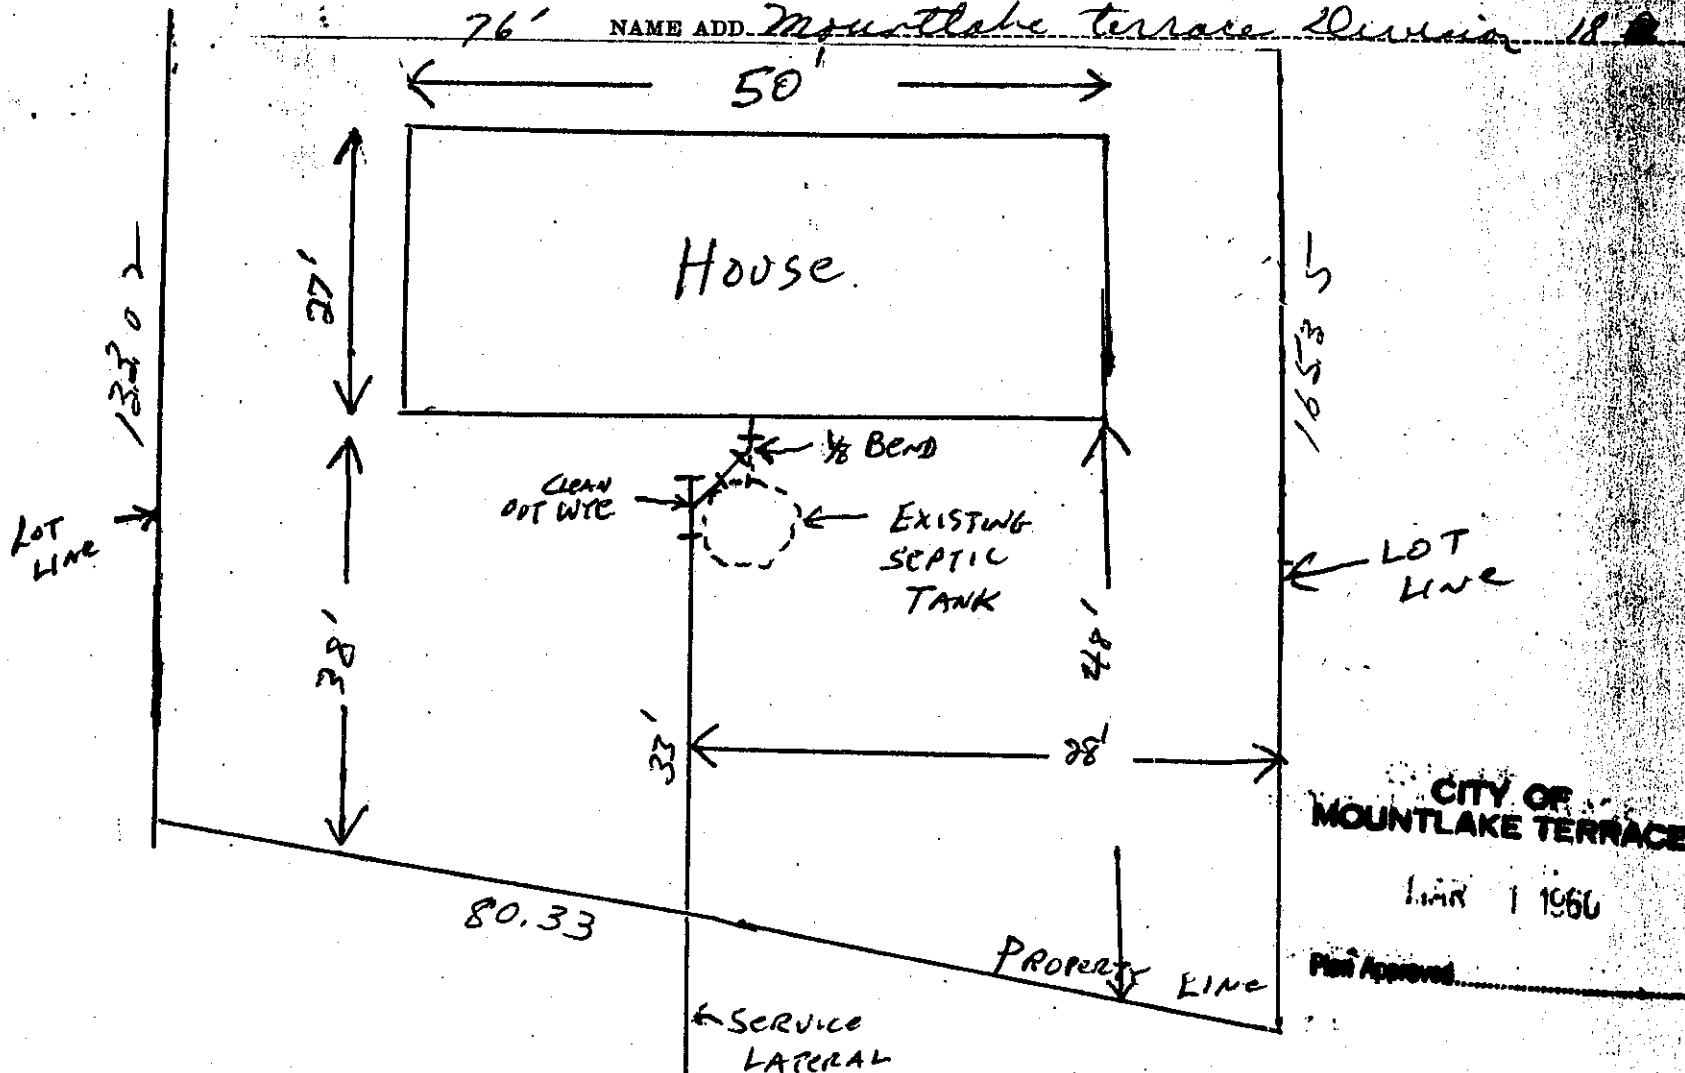 76' NAME ADD. Mountlake terrace Division 18
50'
27'
House
1653 5
1/8 BEND
CLEAN
OUT WYE
EXISTING
SEPTIC
TANK
LOT
LINE
LOT
LINE
38'
48'
33'
28'
80.33
PROPERTY LINE
SERVICE
LATERAL
CITY OF
MOUNTLAKE TERRACE
1 1966
Plan Approved